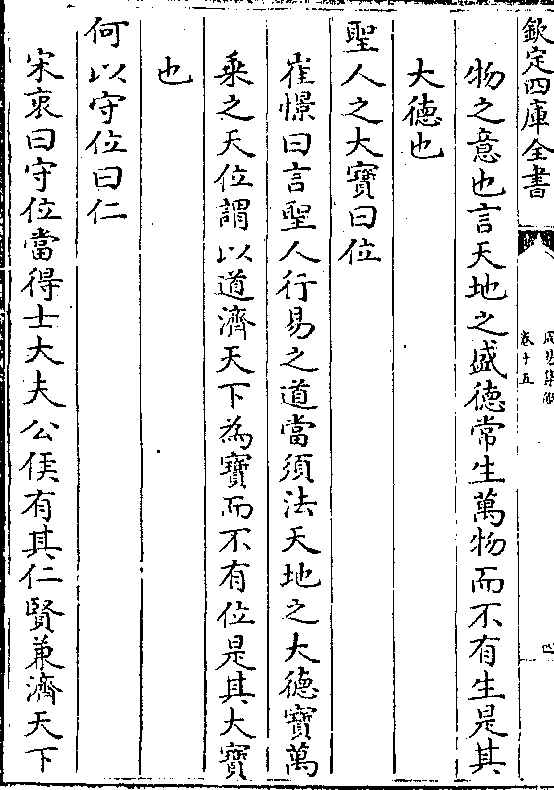 欽定四庫全書
周易集解
卷十五
四
物之意也言天地之盛德常生萬物而不有生是其
大德也
聖人之大寶曰位
崔憬曰言聖人行易之道當須法天地之大德寶萬
乘之天位謂以道濟天下為寶而不有位是其大寶
也
何以守位曰仁
宋衷曰守位當得士大夫公侯有其仁賢兼濟天下